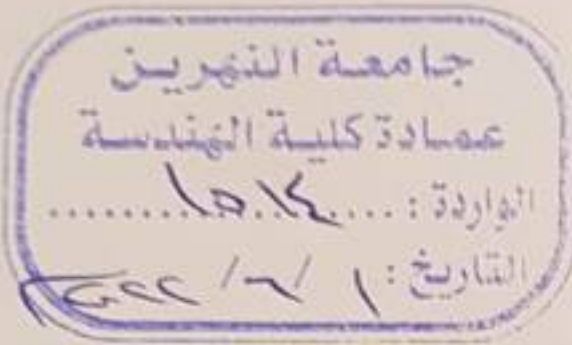 جامعة النهرين
عمادة كلية الهندسة
الواردة : ١٥١٤
التاريخ : ١ / ٦ / ٢٠٢٢